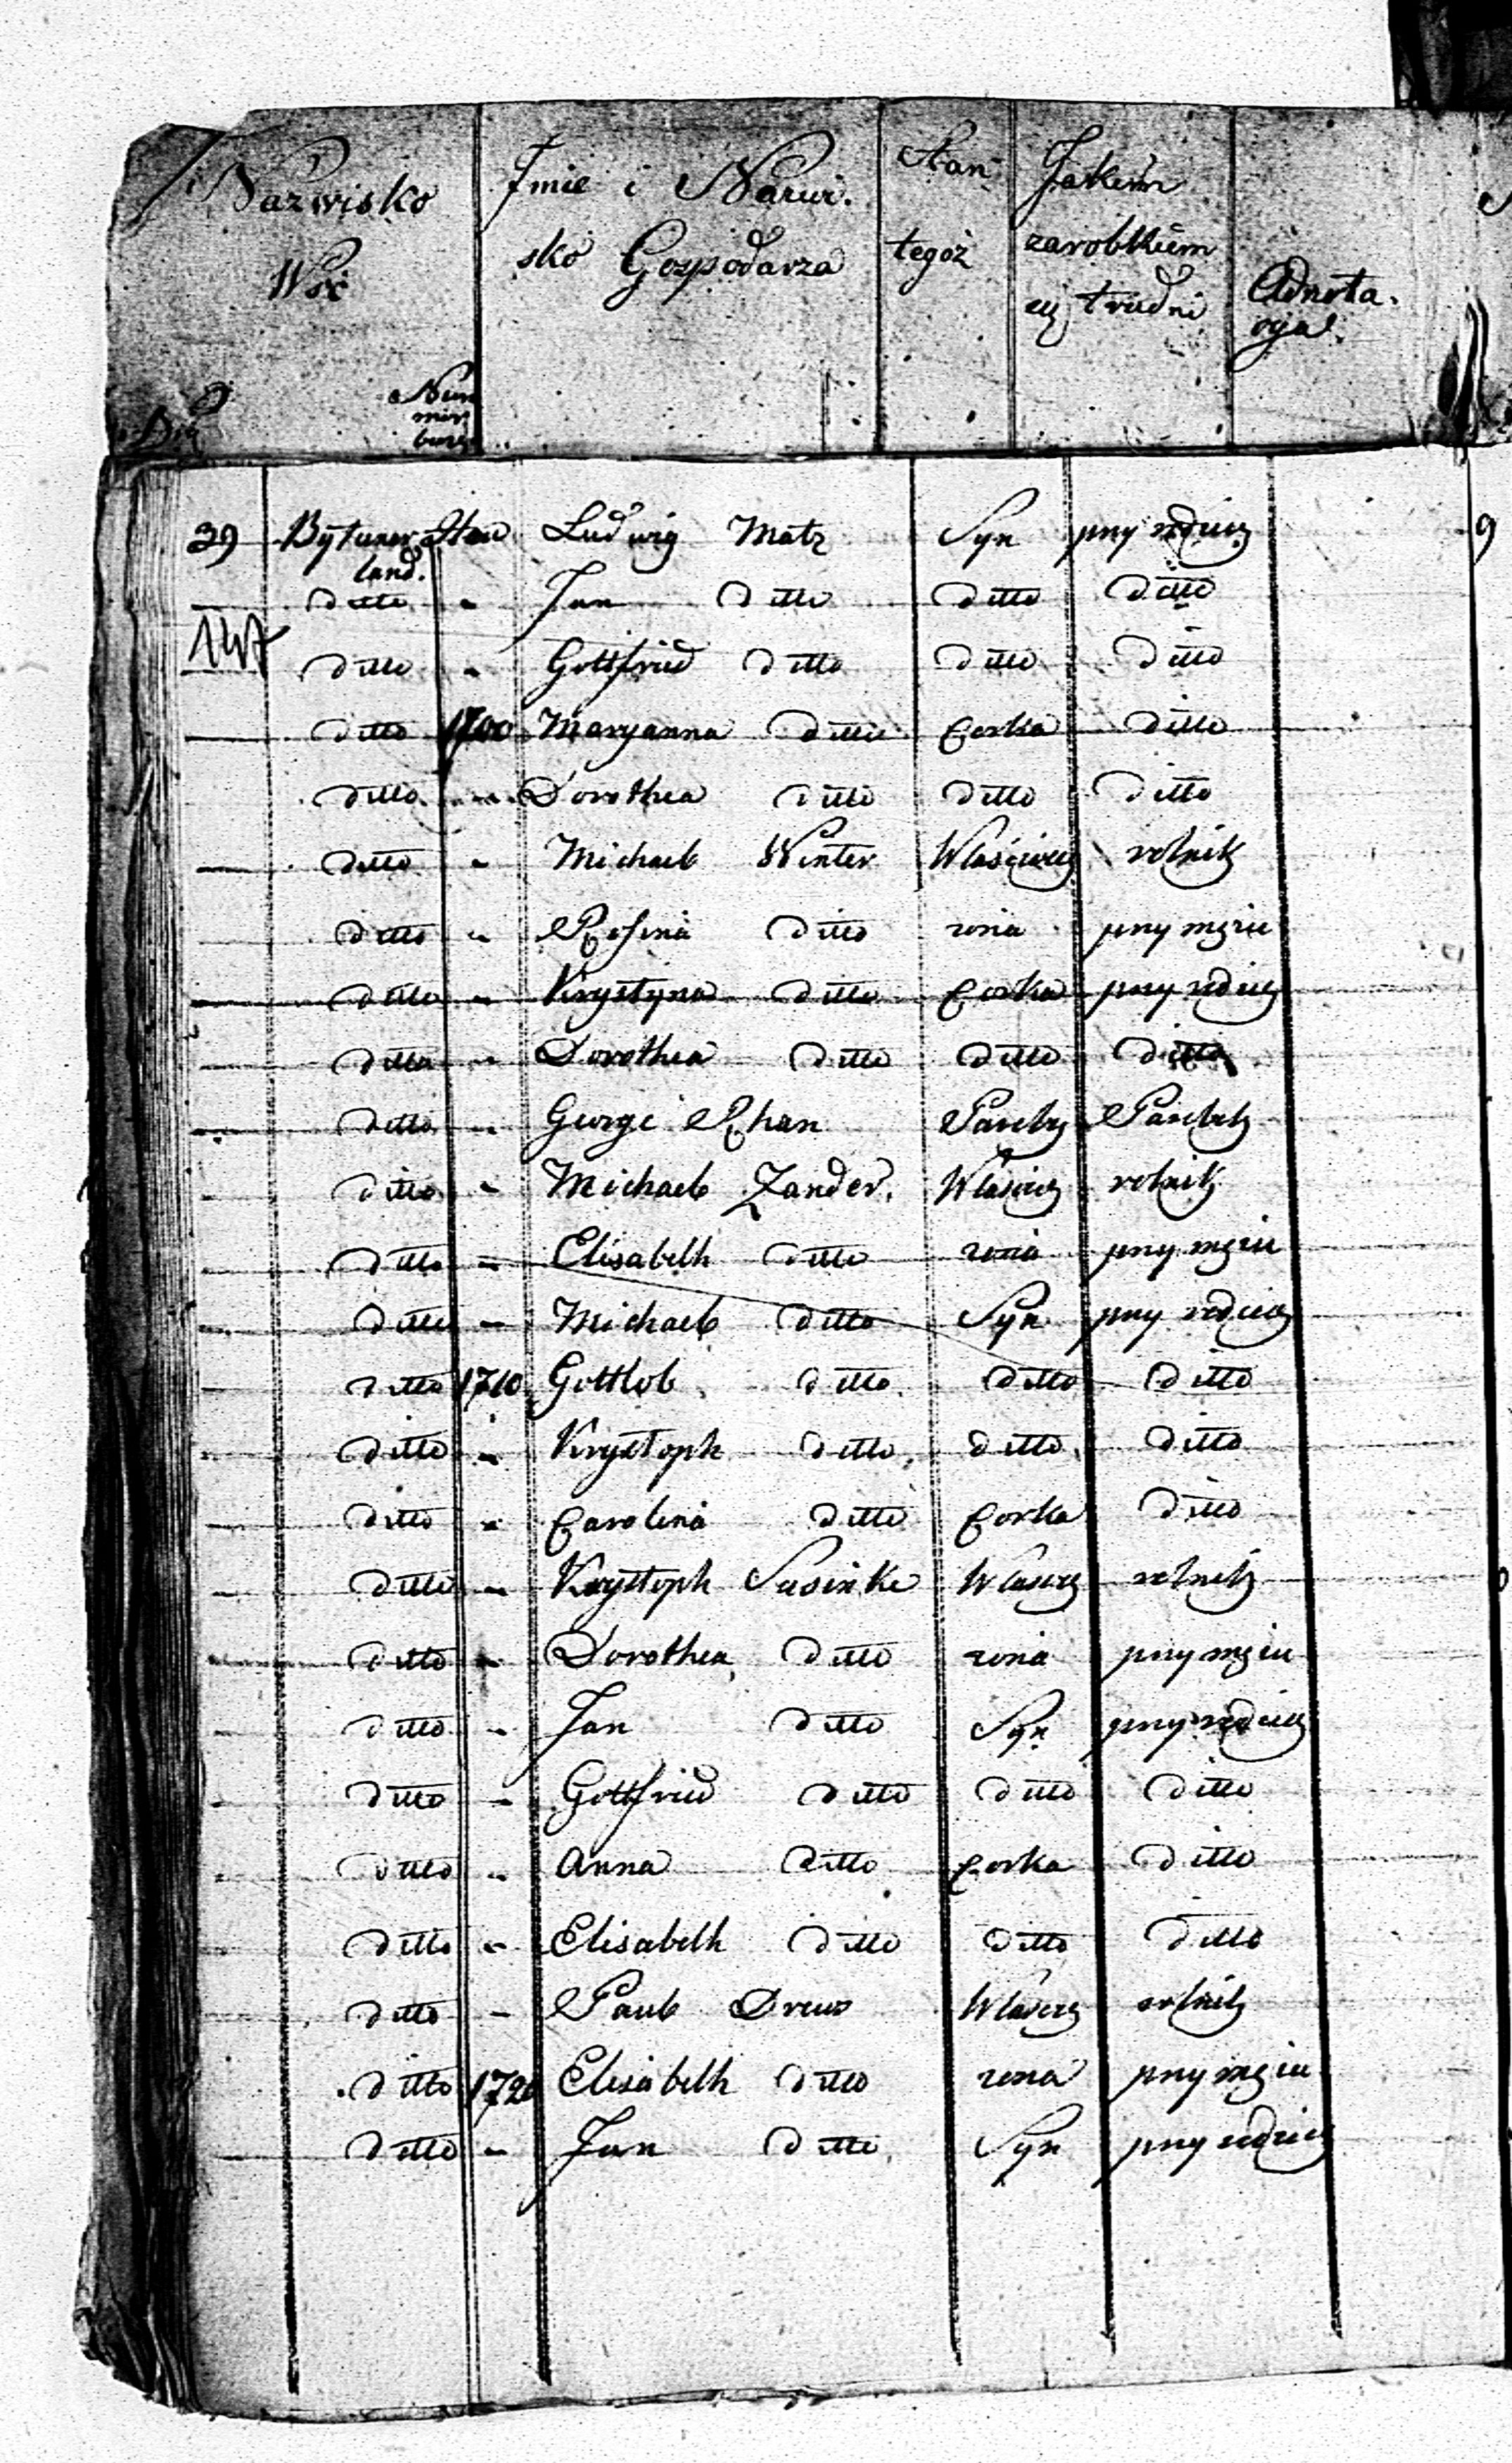 Nazwisko Wsi
Num
mer
Imie i Nazwi.
sko Gospodarza
Stan
tegoż
Jakiem
zarobkiem
się trudni
Adnota.
cya
39 Bytuner Hau Ludwig Matz Syn przy rodzicz
land.
ditto " Jan ditto ditto ditto
147
ditto " Gottfried ditto ditto ditto
ditto 1700 Maryanna ditto Corka ditto
ditto " Dorothea ditto ditto ditto
ditto " Michael Winter Właściciel rolnik
ditto " Rosina ditto zona przy mężu
ditto " Krystyna ditto Corka przy rodzicz
ditto " Dorothea ditto ditto ditto
ditto " George Rhan Parobek Parobek
ditto " Michael Zander. Właścic rolnik
ditto " Elisabeth ditto zona przy mężu
ditto " Michael ditto Syn przy rodzicz
ditto 1710 Gottlob ditto ditto ditto
ditto " Krystoph ditto ditto ditto
ditto " Carolina ditto Corka ditto
ditto " Krystoph Susinke Właścic rolnik
ditto " Dorothea ditto zona przy mężu
ditto " Jan ditto Syn przy rodzicz
ditto " Gottfried ditto ditto ditto
ditto " Anna ditto Corka ditto
ditto " Elisabeth ditto ditto ditto
ditto " Paul Drews Właścic rolnik
ditto 1720 Elisabeth ditto zona przy mężu
ditto " Jan ditto Syn przy rodzicz
9